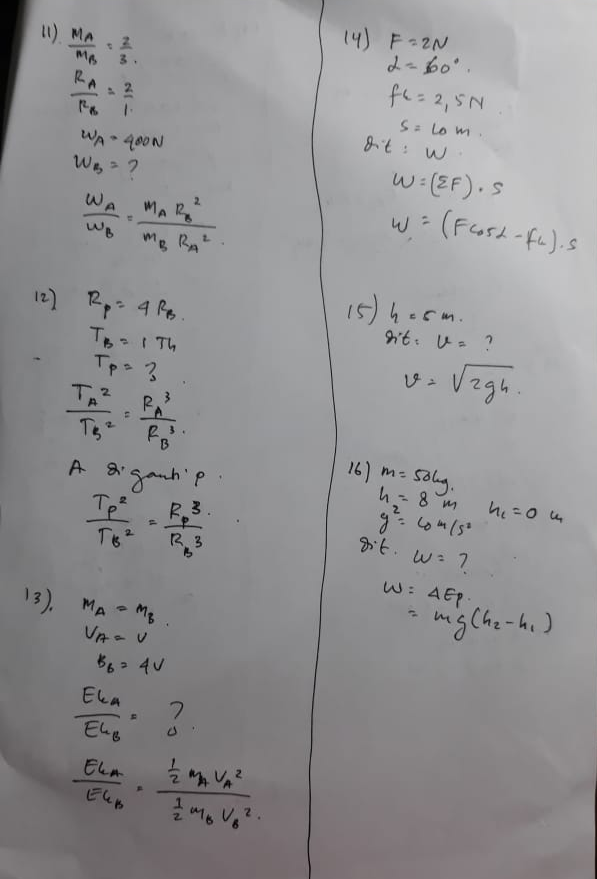 11) M_A/M_B = 2/3.
R_A/R_B = 2/1.
W_A = 400N
W_B = ?
W_A/W_B = M_A R_B²/M_B R_A².
12) R_P = 4 R_B.
T_B = 1 Th
T_P = ?
T_A²/T_B² = R_A³/R_B³.
A diganti p.
T_P²/T_B² = R_P³/R_B³.
13). M_A = M_B.
V_A = V
B_B = 4V
Ek_A/Ek_B = ?
Ek_A/Ek_B = ½ m_A V_A²/½ m_B V_B².
14) F = 2N
α = 60°.
fk = 2,5N
s = 10 m.
dit : W
W = (ΣF) . s
W = (F cos α - fk) . s
15) h = 5 m.
dit : v = ?
v = √2gh.
16) m = 50kg.
h₂ = 8 m h₁ = 0 m
g = 10 m/s²
dit. W = ?
W = ΔEp.
= mg(h₂ - h₁)